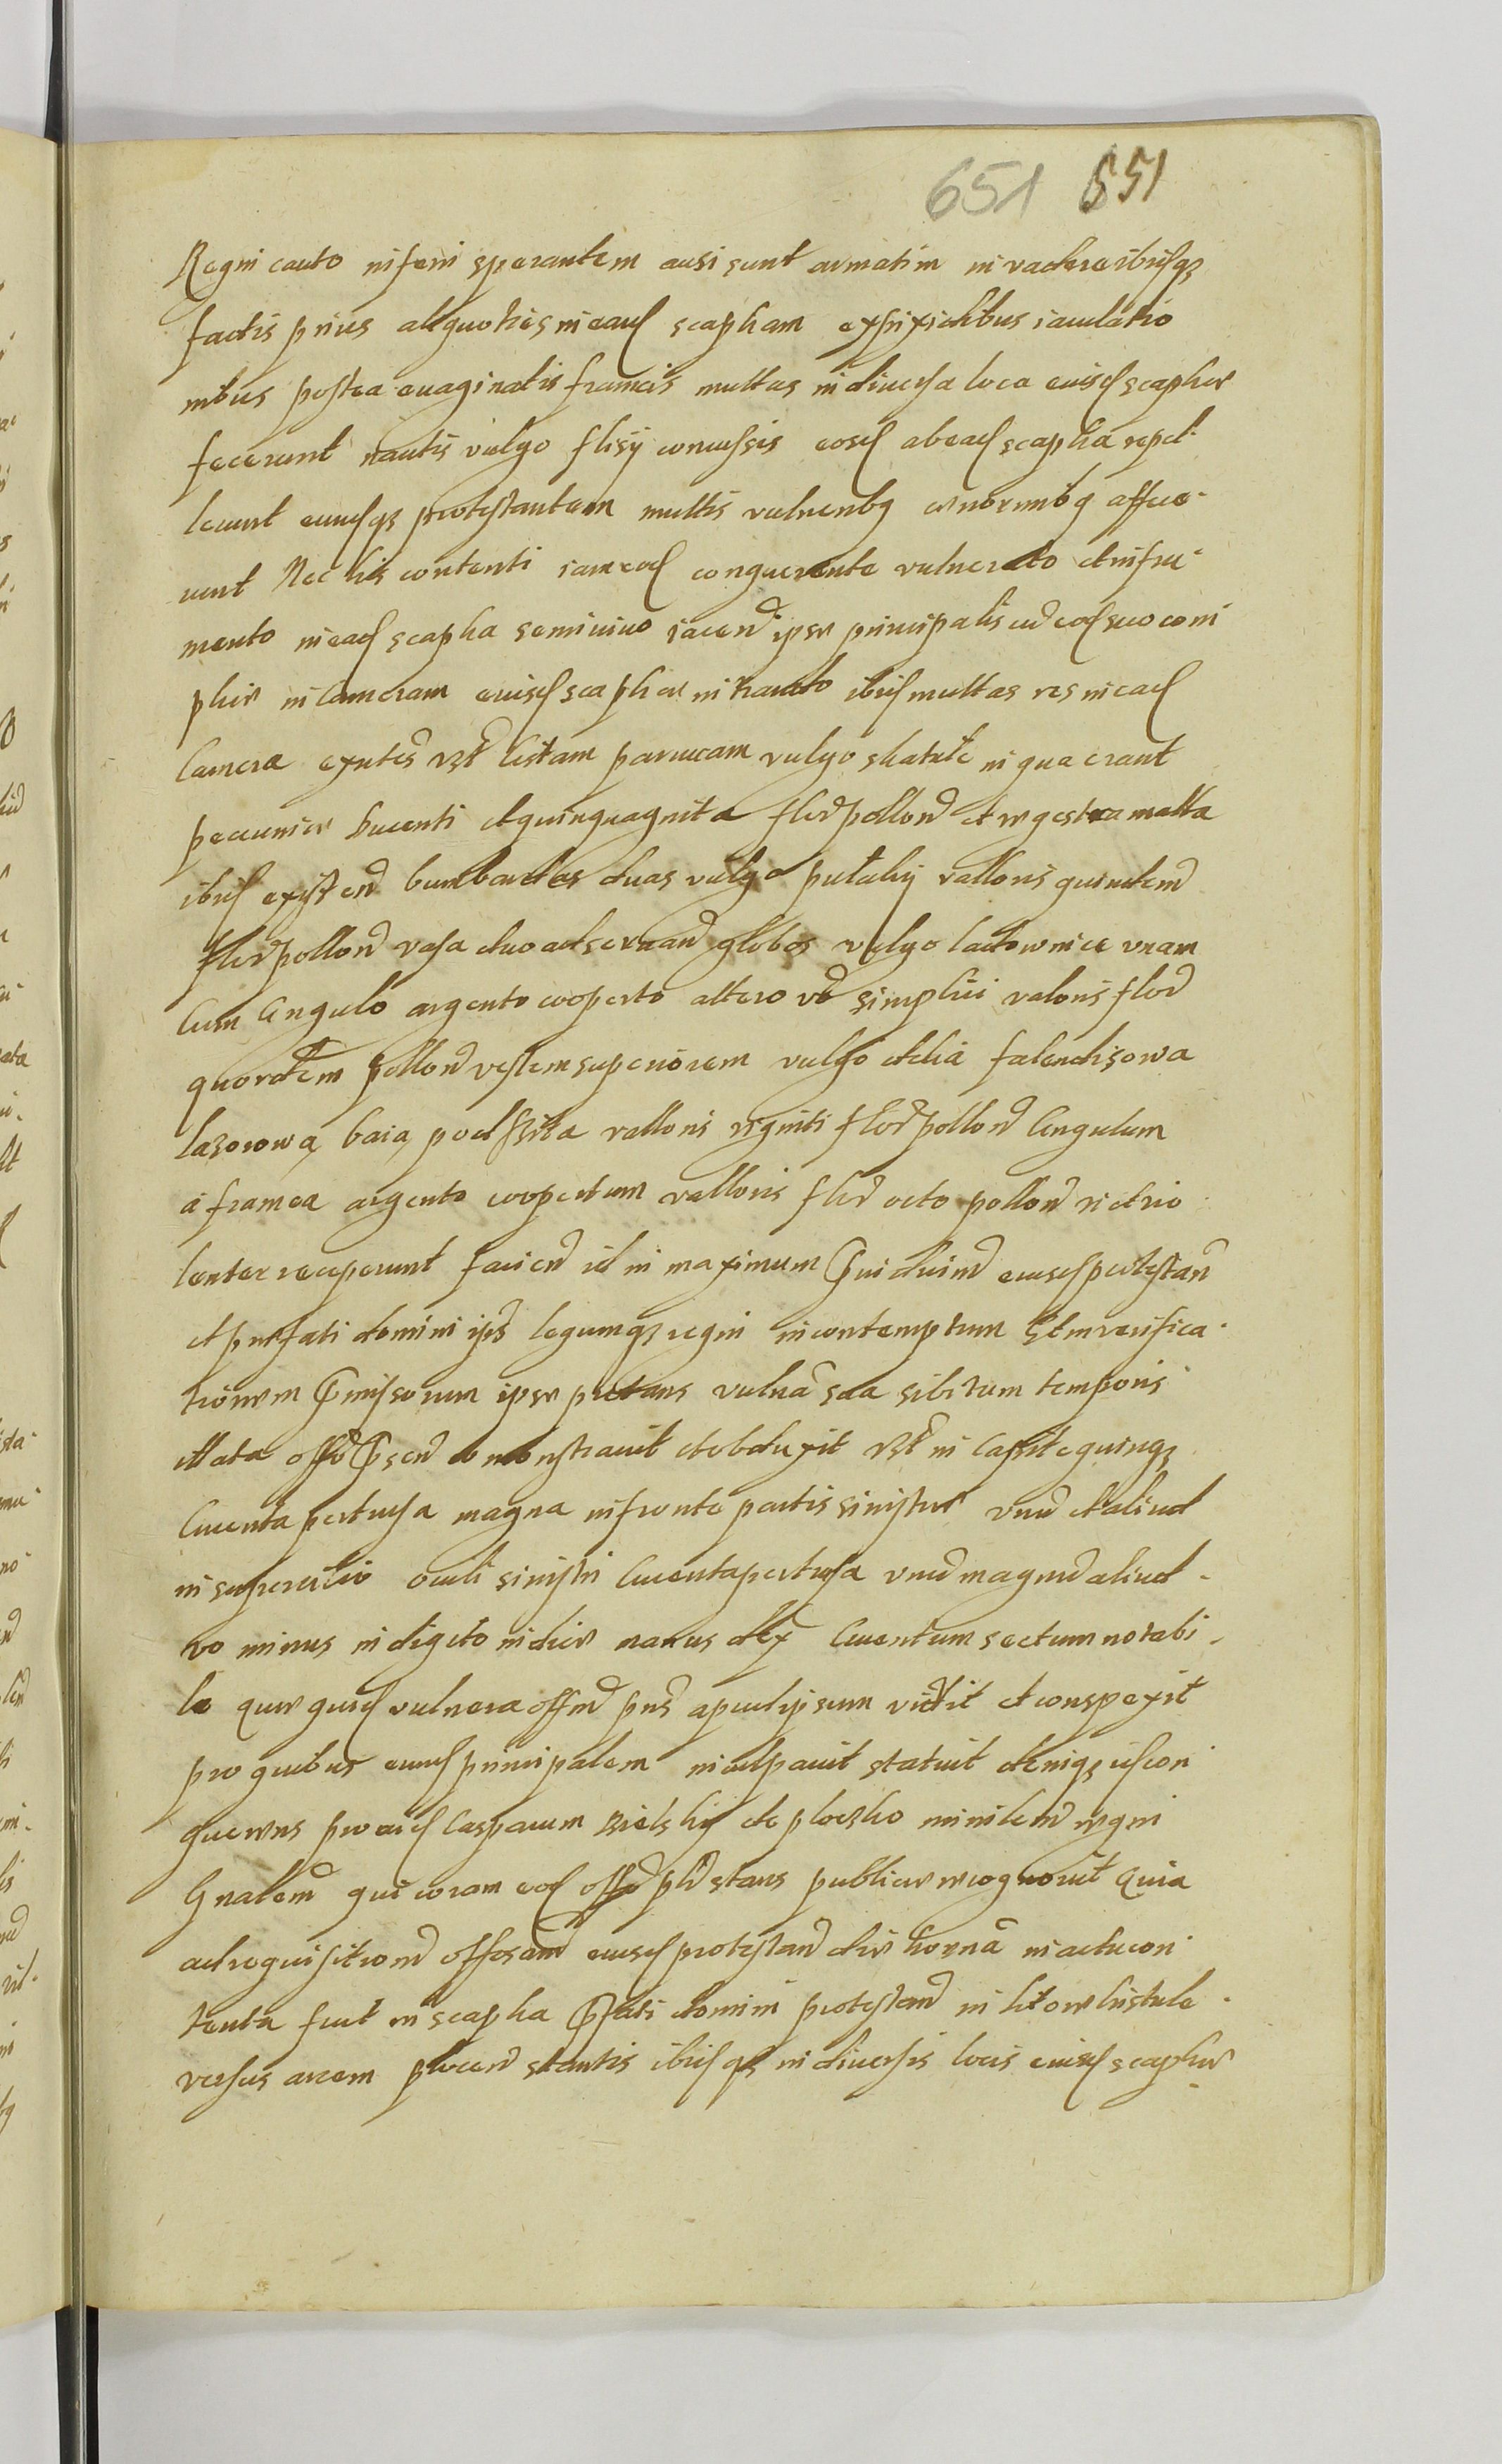 651 651
Regni cauto niseni sperantem ausi sunt armatim invadere ibidqz
factis prius aliquoties in eand scapham ex sixidibus iaculatio
nibus postea evaginatis frameis multas in diversa loca eiusd scaphæ
fecerunt nautis vulgo flisÿ concussis eosd ab ead scapha repel-
lerunt eundqz protestantem multis vulneribq enormibq affece-
runt Nec his contenti iam eod conquerente vulnerato et in fru-
mento in ead scapha seminivo iacend ipse principalis cu eod suo com
plice in Cameram eiusd scaphæ intrando ibid multas res in ead
Camera exntes vzt Cistam parvucam vulgo skatułe in qua erant
pecuniæ Ducenti et quinquaginta flor pollon et regestra nalta
ibid existend bumbardas duas vulgo putalkÿ valloris quindecim
flor pollon vasa duo ad servand globos vulgo ladownice unam
Cum Cingulo argento cooperto altero vo simplici valoris flor
quordecim pollon vestem superiorem vulgo delia falendisowa
lazorowa baia podszita valloris viginti flor pollon Cingulum
a framea argento coopertum valloris flor octo pollon vi et vio
lenter receperunt faciend id in maximum Piudicium eiusd protestan
et præfati domini ips legumqz regni in contemptum Et in verifica-
tionem Pmissorum ipse protans vulna sua sibi tum temporis
illata offo Psen demonstravit et obduxit vzt in Capite quinqz
Cruenta pertusa magna in fronte partis sinistræ unu et aliud
in supercilio oculi sinistri Cruenta pertusa unu magnu aliud
vo minus in digito indice manus dex Cruentum sectum notabi-
le quæ quid vulnera offm pns apud ipsum vidit et conspexit
pro quibus eund principalem inculpavit statuit deniqz is con
querens pro eisd Casparum Bielskÿ de ploczko minilem regni
Gnalem qui coram eod offo pli stans publice recognovit Quia
ad requisitionem offosam eiusd protestan die hoerna in actu con
tenta fuit in scapha Pfati domini protestan in litore Vistule
versus arcem plocen stantis ibidqz in diversis locis eiusd scaphæ